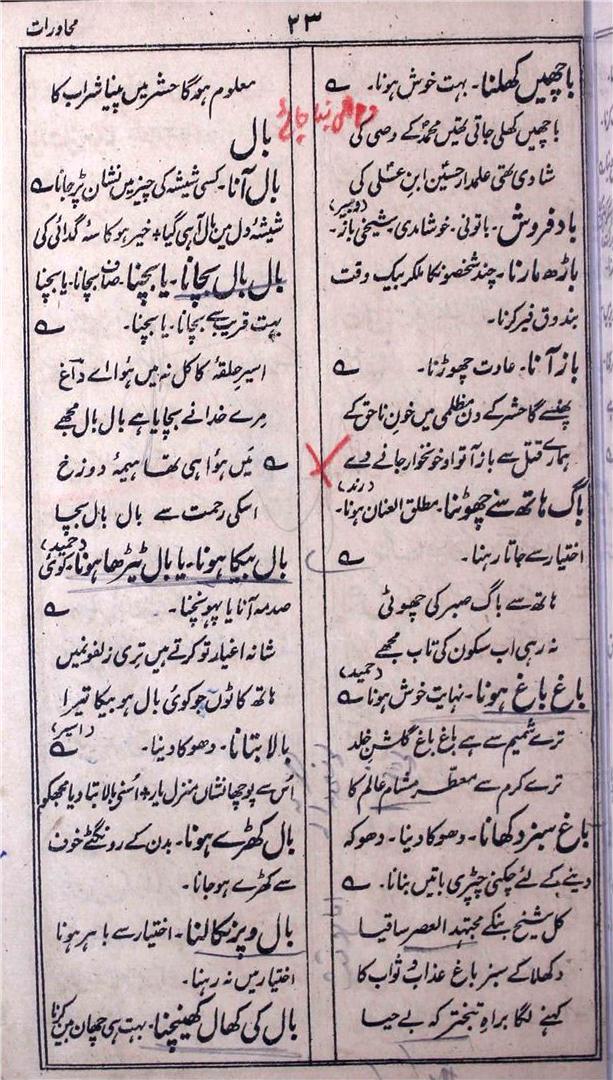 ۲۳
محاورات
باچھیں کھلنا۔ بہت خوش ہونا۔ ے
باچھیں کھلی جاتی تھیں محمدؐ کے وصی کی
شادی تھی علمدار حسین ابنِ علی کی
(دبیر)
باد فروش۔ باتونی۔ خوشامدی۔ شیخی باز۔
باڑھ مارنا۔ چند شخصوں کا ملکر بیک وقت
بندوق فیر کرنا۔
باز آنا۔ عادت چھوڑنا۔ ے
پھنسے گا حشر کے دن مظلمی میں خونِ ناحق کے
ہمارے قتل سے باز آ تو او خونخوار جانے دے
(رند)
باگ ہاتھ سے چھوٹنا۔ مطلق العنان ہونا۔
اختیار سے جاتا رہنا۔ ے
ہاتھ سے باگ صبر کی چھوٹی
نہ رہی اب سکون کی تاب مجھے
(حمید)
باغ باغ ہونا۔ نہایت خوش ہونا ے
ترے شمیم سے ہے باغ باغ گلشنِ خلد
ترے کرم سے معطر مشام عالم کا
باغ سبز دکھانا۔ دھوکا دینا۔ دھوکہ
دینے کے لئے چکنی چپڑی باتیں بنانا۔ ے
کل شیخ بنکے مجتہد العصر ساقیا
دکھلا کے سبز باغ عذاب و ثواب کا
کہنے لگا براہِ تبختر کہ بے حیا
معلوم ہوگا حشر میں پینا شراب کا
بال
بال آنا۔ کسی شیشہ کی چیز میں نشان پڑ جانا ے
شیشۂ دل میں بال آ ہی گیا + خیر ہو کاسۂ گدائی کی
بال بال بچانا۔ یا بچنا۔ صاف بچانا۔ یا بچنا
بہت قریب سے بچانا۔ یا بچنا۔ ے
اسیر حلقۂ کاکل نہ میں ہوا اے داغ
مرے خدا نے بچایا ہے بال بال مجھے
ے میں ہوا ہی تھا ہیمۂ دوزخ
اسکی رحمت سے بال بال بچا
(حمید)
بال بیکا ہونا۔ یا بال ٹیڑھا ہونا۔ کوئی
صدمہ آنا یا پہونچنا۔ ے
شانہ اغیار تو کرتے ہیں تری زلفونمیں
ہاتھ کاٹوں جو کوئی بال ہو بیکا تیرا
(اسیر)
بالا بتانا۔ دھوکا دینا۔ ے
اُس سے پوچھا نشاں منزل یار + اُسنی بالا بتا دیا مجھکو
بال کھڑے ہونا۔ بدن کے رونگٹے خوف
سے کھڑے ہو جانا۔
بال و پر نکالنا۔ اختیار سے باہر ہونا
اختیار میں نہ رہنا۔
بال کی کھال کھینچنا۔ بہت ہی چھان بین کرنا